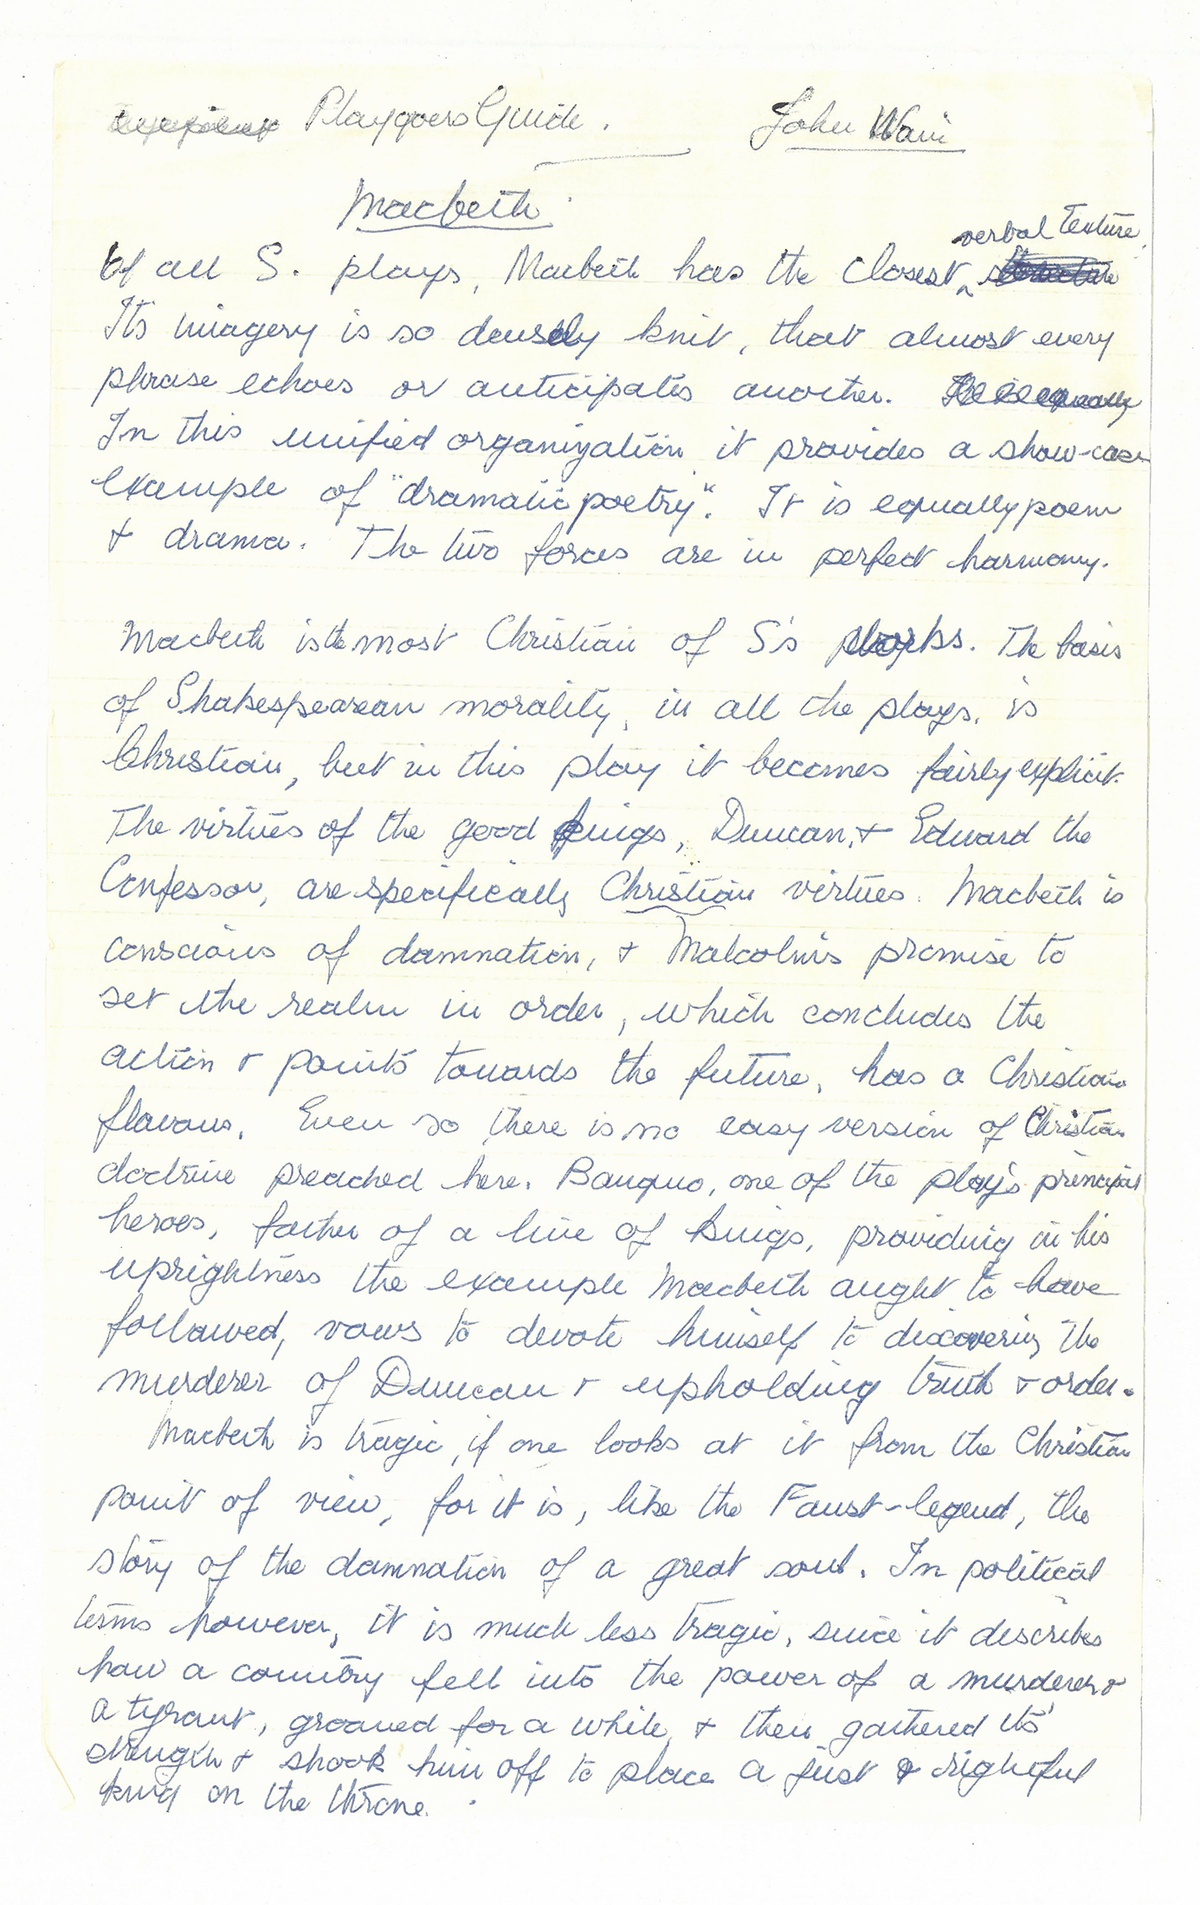 Playgoers Guide. John Wain
Macbeth.
Of all S. plays, Macbeth has the closest verbal texture.
Its imagery is so densely knit, that almost every
phrase echoes or anticipates another.
In this unified organization it provides a show-case
example of "dramatic poetry". It is equally poem
& drama. The two forces are in perfect harmony.
Macbeth is the most Christian of S's works. The basis
of Shakespearean morality, in all the plays, is
Christian, but in this play it becomes fairly explicit.
The virtues of the good kings, Duncan, & Edward the
Confessor, are specifically Christian virtues. Macbeth is
conscious of damnation, & Malcolm's promise to
set the realm in order, which concludes the
action & points towards the future, has a Christian
flavour. Even so there is no easy version of Christian
doctrine preached here. Banquo, one of the play's principal
heroes, father of a line of kings, providing in his
uprightness the example Macbeth aught to have
followed, vows to devote himself to discovering the
murderer of Duncan & upholding truth & order.
Macbeth is tragic, if one looks at it from the Christian
point of view, for it is, like the Faust-legend, the
story of the damnation of a great soul. In political
terms however, it is much less tragic, since it describes
how a country fell into the power of a murderer &
a tyrant, groaned for a while, & then gathered its
strength & shook him off to place a just & rightful
king on the throne.